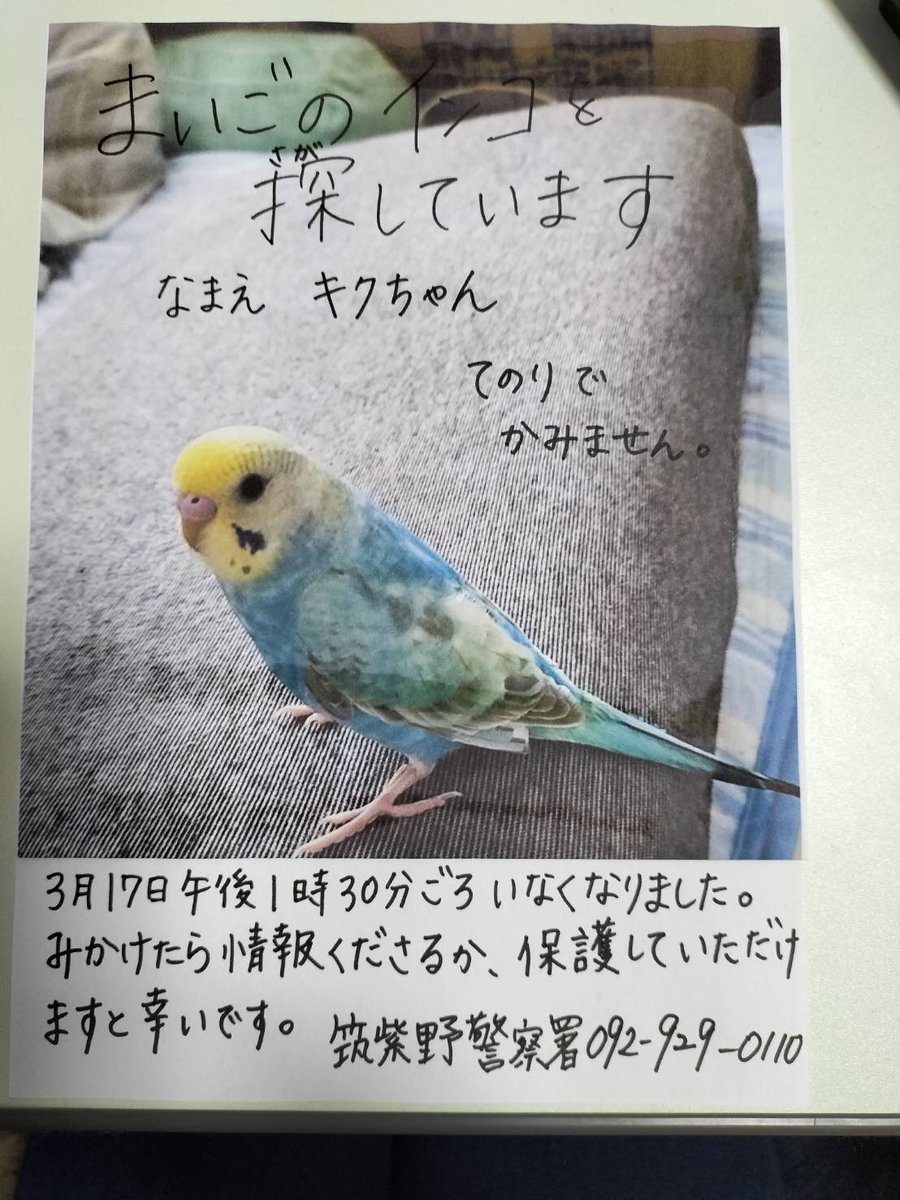 まいごのインコを
探しています
さが
なまえ キクちゃん
てのりで
かみません。
3月17日午後1時30分ごろいなくなりました。
みかけたら情報くださるか、保護していただけ
ますと幸いです。 筑紫野警察署092-929-0110